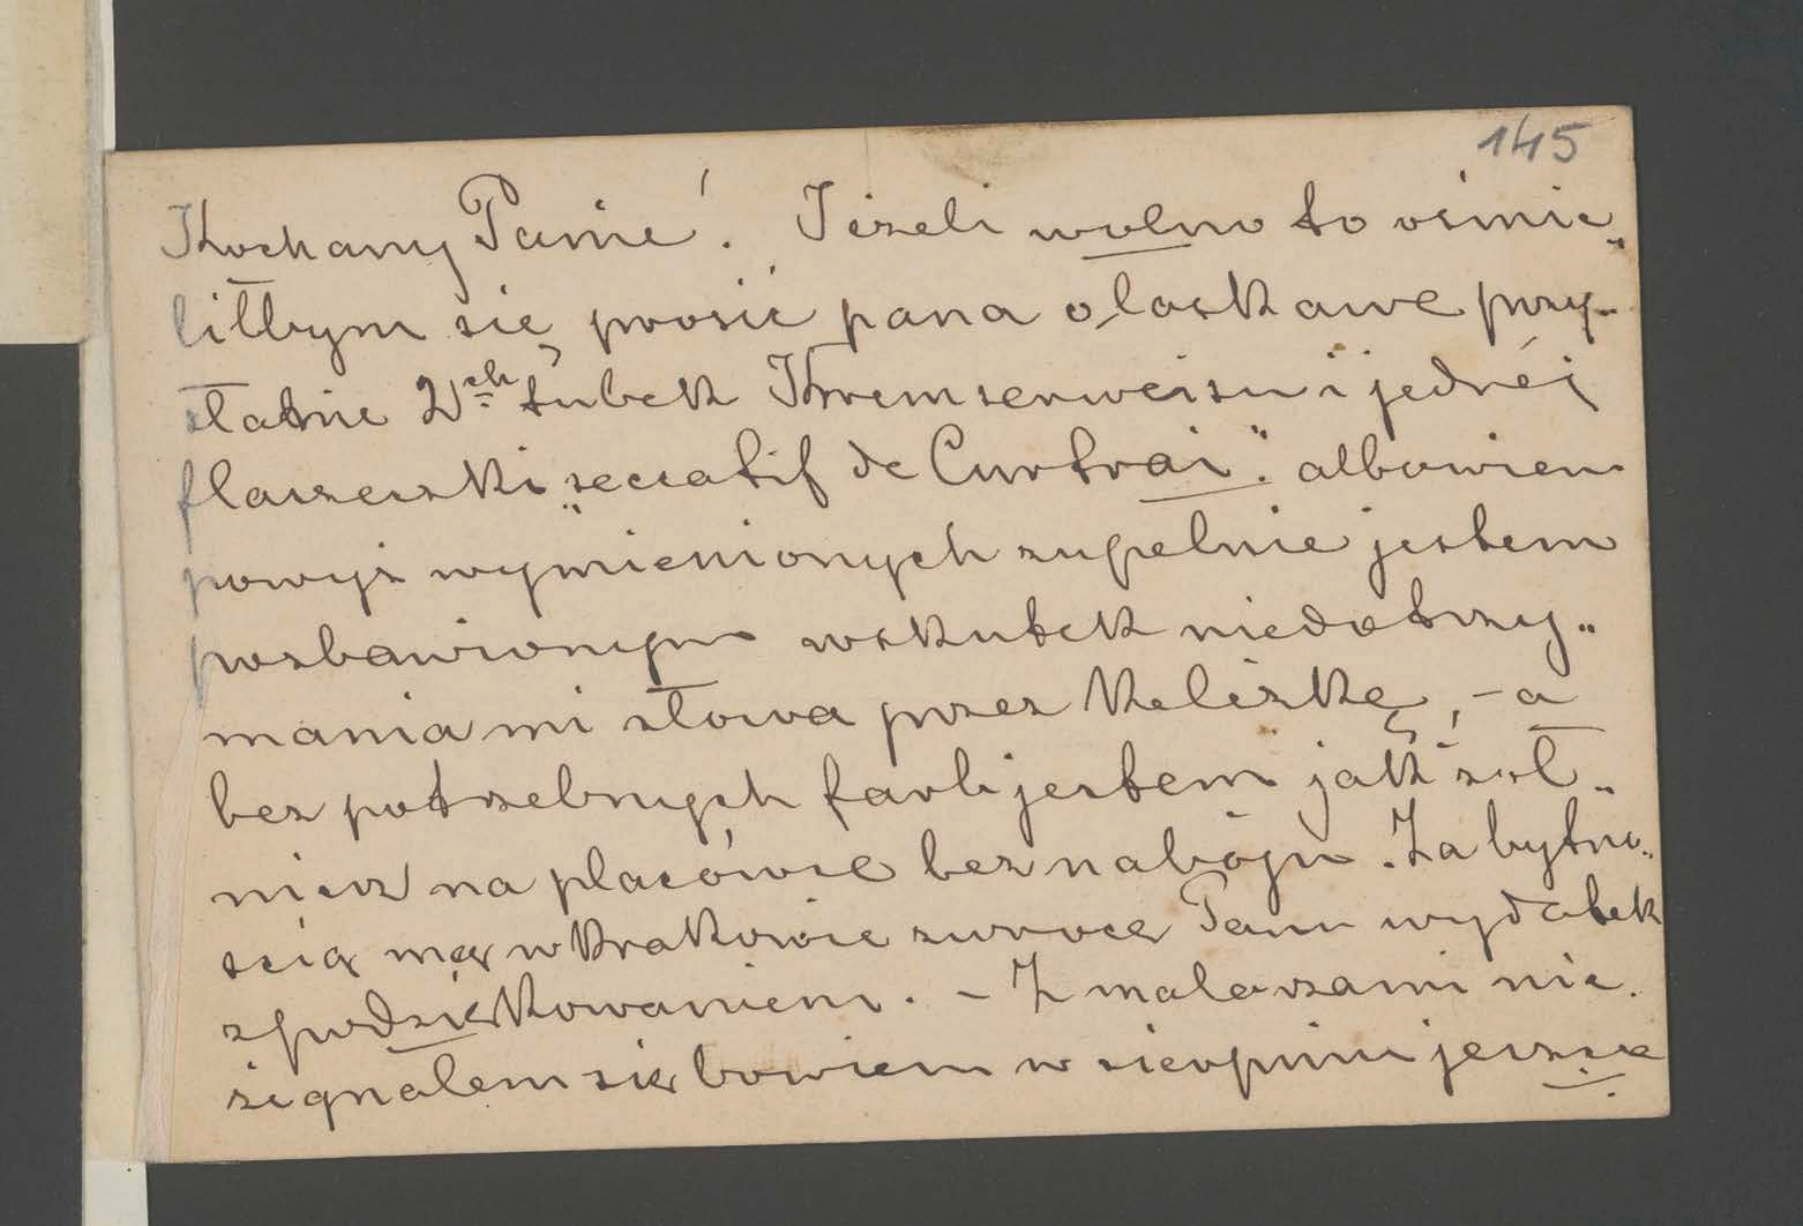 145
Kochany Panie! Jeżeli wolno to ośmie„
liłbym się prosić pana o łaskawe przy„
słanie 2ch tubek Kremserweisu i jednéj
flaszeczki „seccatif de Curtrai". albowiem
powyż wymienionych zupełnie jestem
pozbawionym wskutek niedotrzy„
mania mi słowa przez Keliżkę, – a
bez potrzebnych farb jestem jak żoł„
nierz na placówce bez naboju. Za bytno„
ścią mą w Krakowie zwrócę Panu wydatek
z podziękowaniem. – Z malarzami nie
żegnałem się bowiem w sierpniu jeszcze